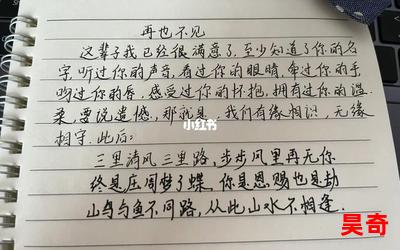 再也不见
这辈子我已经很满意了,至少知道了你的名
字,听过你的声音,看过你的眼睛,牵过你的手
吻过你的唇,感受过你的怀抱,拥有过你的温
柔,要说遗憾,那就是,我们有缘相识,无缘
相守.此后:
小红书
三里清风三里路,步步风里再无你
终是庄周梦了蝶,你是恩赐也是劫
山鸟与鱼不同路,从此山水不相逢.
昊奇